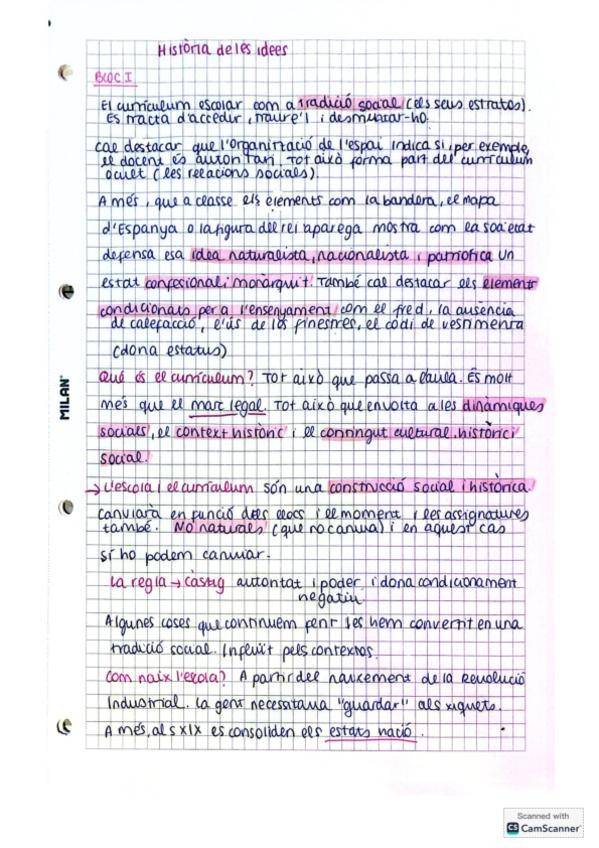 Història de les idees
BLOC I
El currículum escolar com a tradició social (els seus estratos).
Es tracta d'accedir, traure'l i desmuntar-ho.
Cal destacar que l'organització de l'espai indica si, per exemple,
el docent és autoritari. Tot això forma part del currículum
ocult (les relacions socials).
A més, que a classe els elements com la bandera, el mapa
d'Espanya o la figura del rei aparega mostra com la societat
defensa esa idea naturalista, nacionalista i patriòtica un
estat confesional i monàrquit. També cal destacar els elements
condicionats per a l'ensenyament com el fred, la ausència
de calefacció, l'ús de los finestres, el codi de vestimenta
(dona estatus)
Què és el currículum? Tot això que passa a l'aula. És molt
més que el marc legal. Tot això que envolta a les dinàmiques
socials, el context històric i el contingut cultural, històric i
social.
→ L'escola i el currículum són una construcció social i històrica.
Canviarà en funció dels llocs i el moment i les assignatures
també. No naturales (que no canvia) i en aquest cas
sí ho podem canviar.
La regla → càstig autoritat i poder i dona condicionament
negatiu.
Algunes coses que continuem fent les hem convertit en una
tradició social. Influït pels contextos.
Com naix l'escola? A partir del naixement de la Revolució
Industrial. La gent necessitava "guardar" als xiquets.
A més, al s XIX es consoliden els estats nació.
MILAN
Scanned with
CS CamScanner